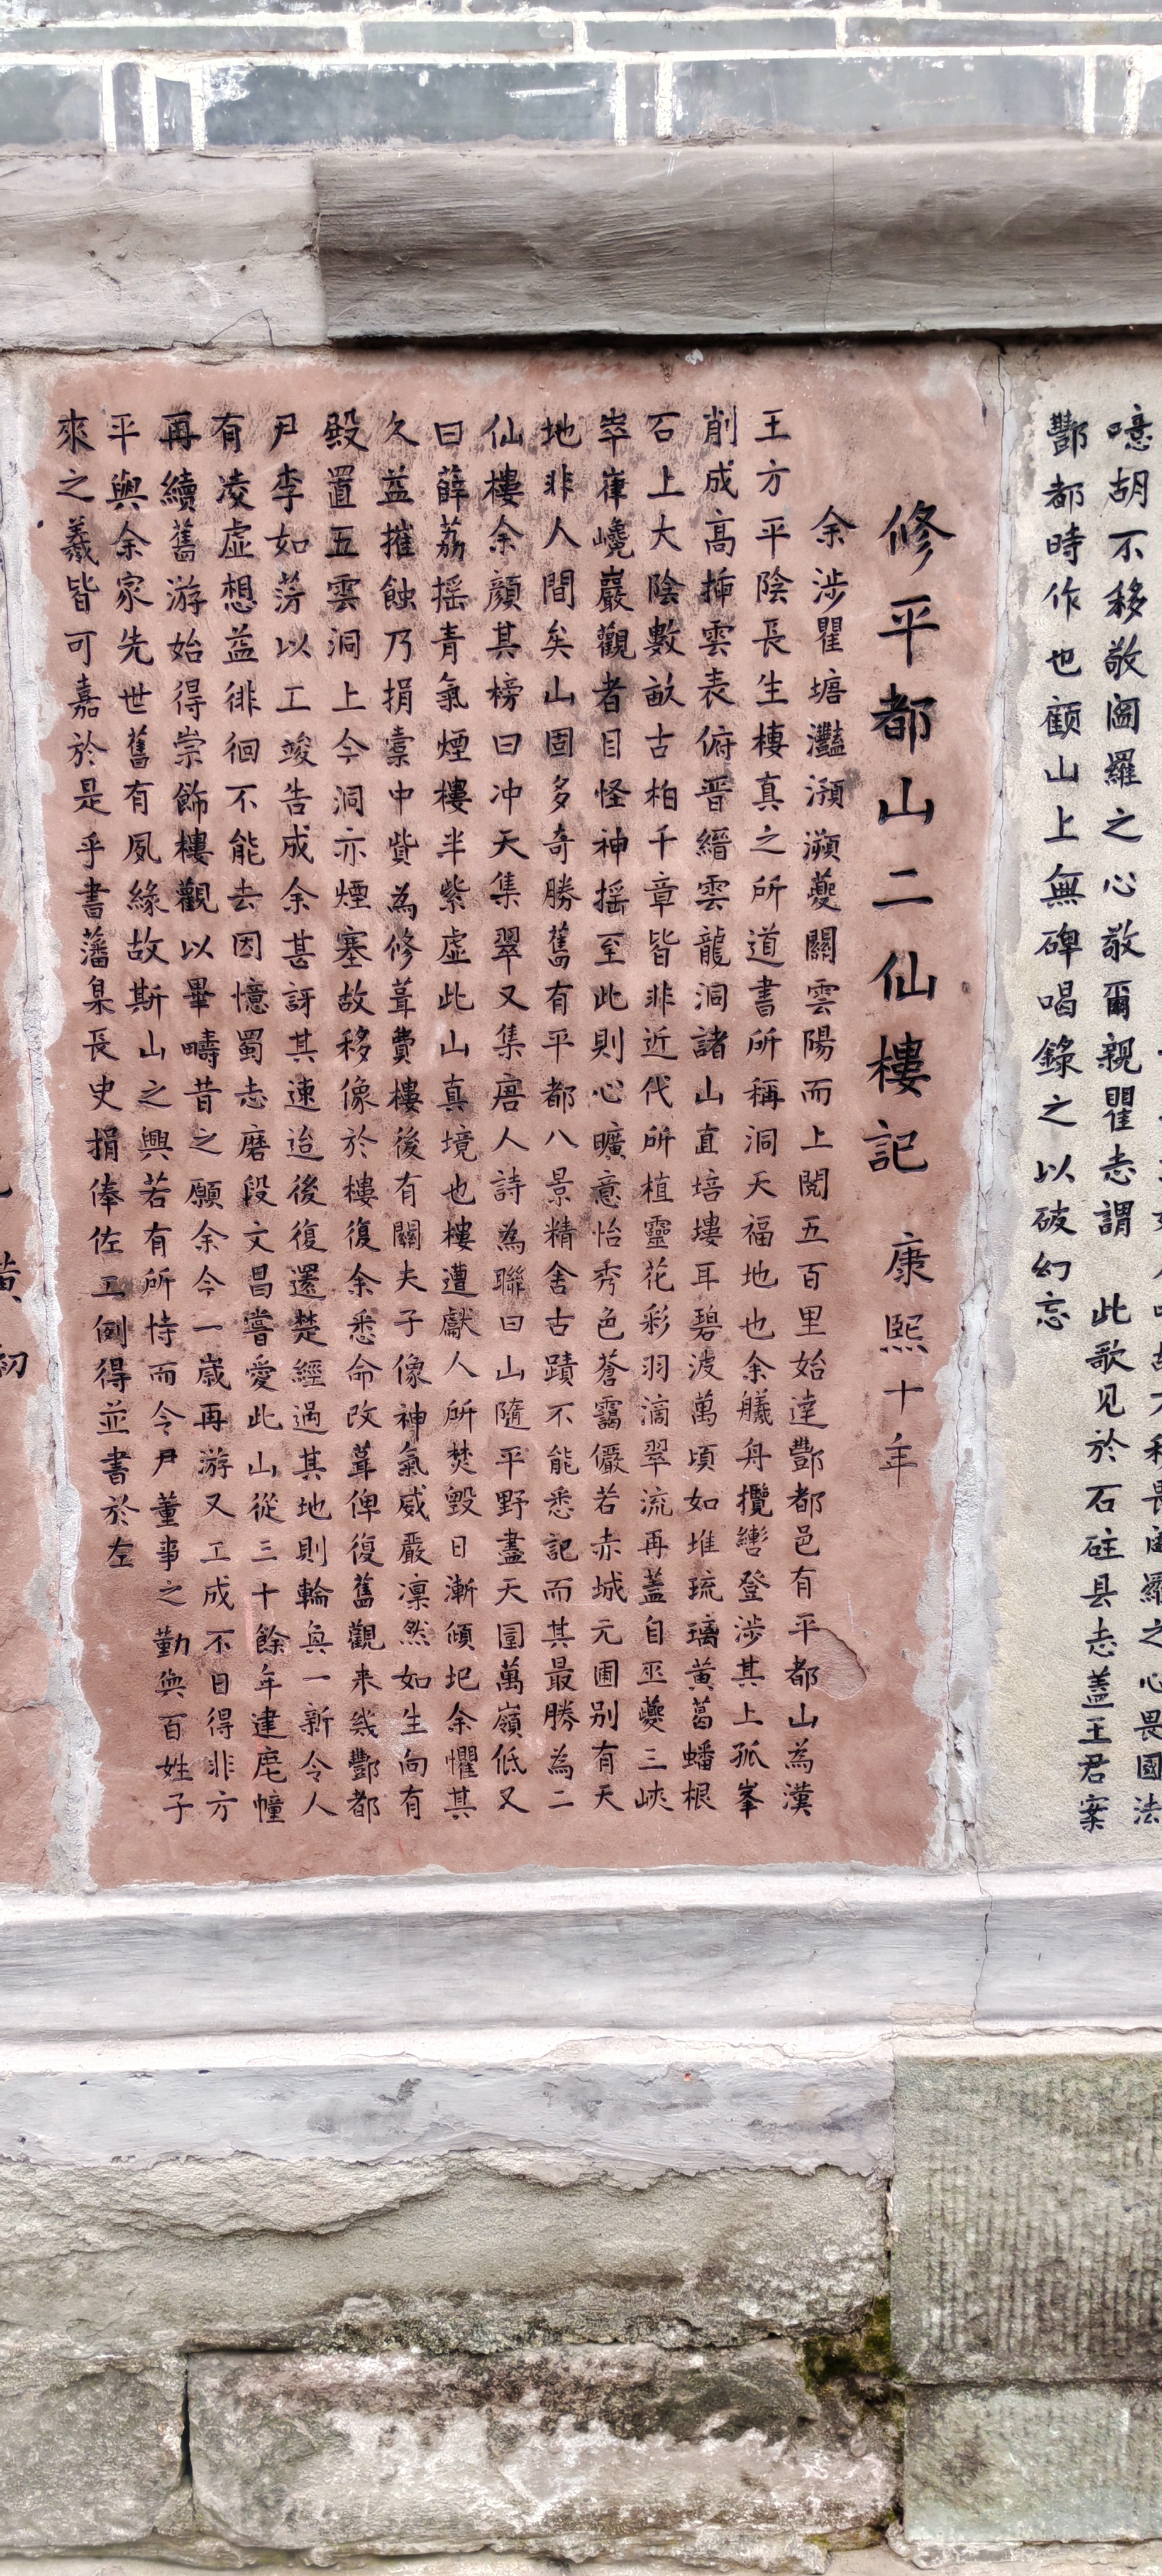 噫胡不移敬阎羅之心敬爾親瞿志謂 此歌见於石砫县志蓋王君案
酆都時作也顧山上無碑喝錄之以破幻忘
修平都山二仙樓記 康熙十年
余涉瞿塘灩澦瀕夔關雲陽而上閱五百里始達酆都邑有平都山為漢
王方平陰長生棲真之所道書所稱洞天福地也余艤舟攬轡登涉其上孤峯
削成高揷雲表俯晋縉雲龍洞諸山直培塿耳碧波萬頃如堆琉璃黄葛蟠根
石上大陰數畝古柏千章皆非近代所植靈花彩羽滴翠流再蓋自巫夔三峽
崒嵂巉巖觀者目怪神摇至此則心曠意怡秀色蒼靄儼若赤城元圃别有天
地非人間矣山固多奇勝舊有平都八景精舍古蹟不能悉記而其最勝為二
仙樓余顔其榜曰冲天集翠又集唐人詩為聯曰山隨平野盡天圍萬嶺低又
曰薛荔摇青氣煙樓半紫虚此山真境也樓遭獻人所焚毀日漸傾圯余懼其
久益摧蝕乃捐橐中貲為修葺費樓後有關夫子像神氣威嚴凛然如生向有
殿置五雲洞上今洞亦煙塞故移像於樓復余悉命改葺俾復舊觀来幾酆都
尹李如涝以工竣告成余甚訝其速迨後復還楚經過其地則輪奐一新令人
有凌虚想益徘徊不能去因憶蜀志磨段文昌嘗愛此山從三十餘年建麾幢
再續舊游始得崇飾樓觀以畢疇昔之願余今一歲再游又工成不日得非方
平與余家先世舊有夙緣故斯山之興若有所恃而令尹董事之勤與百姓子
來之義皆可嘉於是乎書藩臬長史捐俸佐工例得並書於左